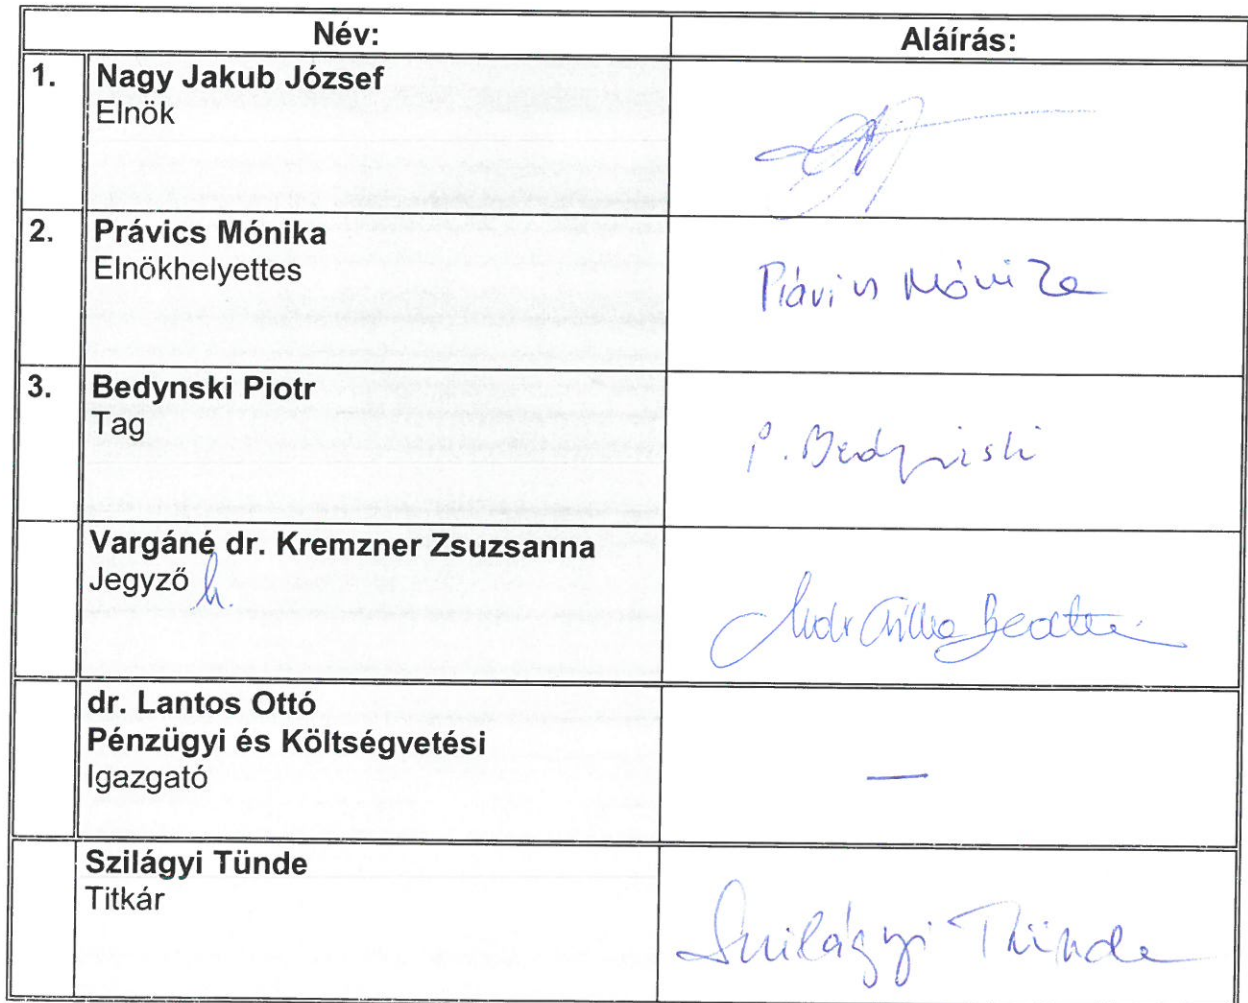 Név: Aláírás:
1. Nagy Jakub József
Elnök
2. Právics Mónika
Elnökhelyettes
Právics Mónika
3. Bedynski Piotr
Tag
P. Bedynski
Vargáné dr. Kremzner Zsuzsanna
Jegyző h.
Beatta
dr. Lantos Ottó
Pénzügyi és Költségvetési
Igazgató
—
Szilágyi Tünde
Titkár
Szilágyi Tünde